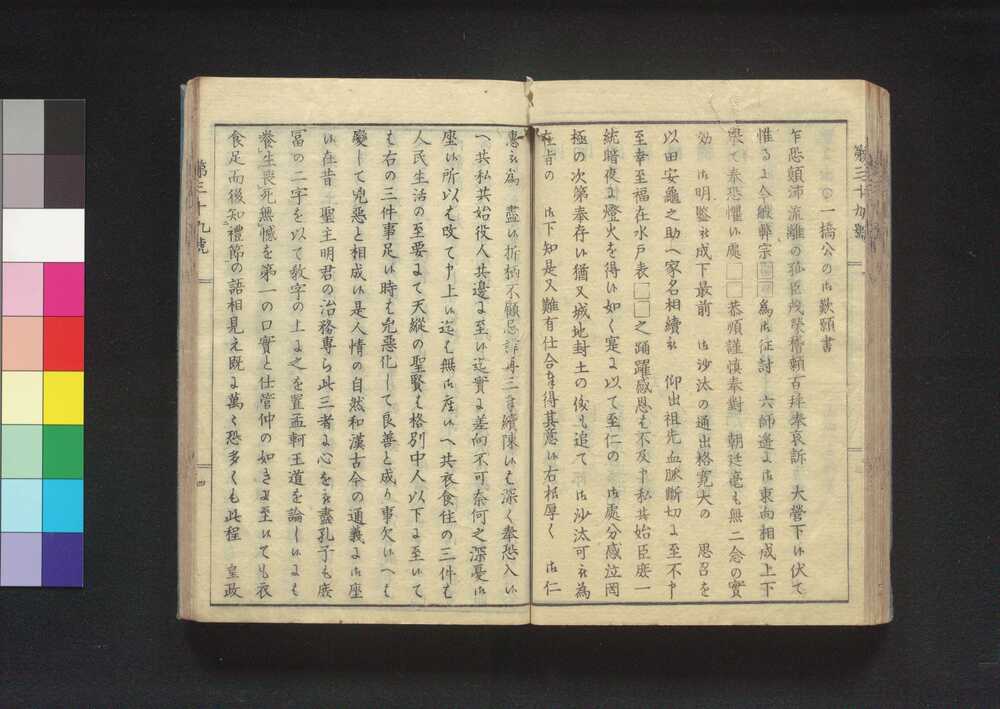 第三十九號
一橋公の御歎願書
乍恐顛沛流離の孤臣茂榮稽顙百拝奉哀訴 大營下候伏て
惟るに今般弊宗□□為御征討 六師邊に御東向相成上下
擧て奉恐懼候處□□恭順謹慎奉對 朝廷毫も無二念の實
効 御明鑒被成下最前 御沙汰の通出格寛大の 思召を
以田安龜之助へ家名相續被 仰出祖先血脉斷切に至不申
至幸至福在水戸表□□之踊躍感恩も不及申私共始臣庶一
統暗夜に燈火を得候如く寔に以て至仁の 御處分感泣罔
極の次第奉存候猶又城地封土の儀も追て 御沙汰可被為
在旨の 御下知是又難有仕合奉得其意候右根厚く 御仁
惠被為 盡候折柄不顧忌諱再三奉續陳候も深く奉恐入候
へ共私共始役人共邊に至候迄實に差向不可奈何之深憂御
座候所以を改て申上候迄も無御座候へ共衣食住の三件も
人民生活の至要にて天縱の聖賢も格別中人以下に至候て
も右の三件事足候時も兇惡化して良善と成り事欠候へも
變して兇惡と相成候是人情の自然和漢古今の通義に御座
候在昔 聖主明君の治務専ら此三者に心を被盡孔子も庶
冨の二字を以て教字の上に之を置孟軻王道を論し候にも
養生喪死無憾を第一の口實と仕管仲の如きに至候ても衣
食足而後知禮節の語相見え既に萬々恐多くも此程 皇政
第三十九號
四